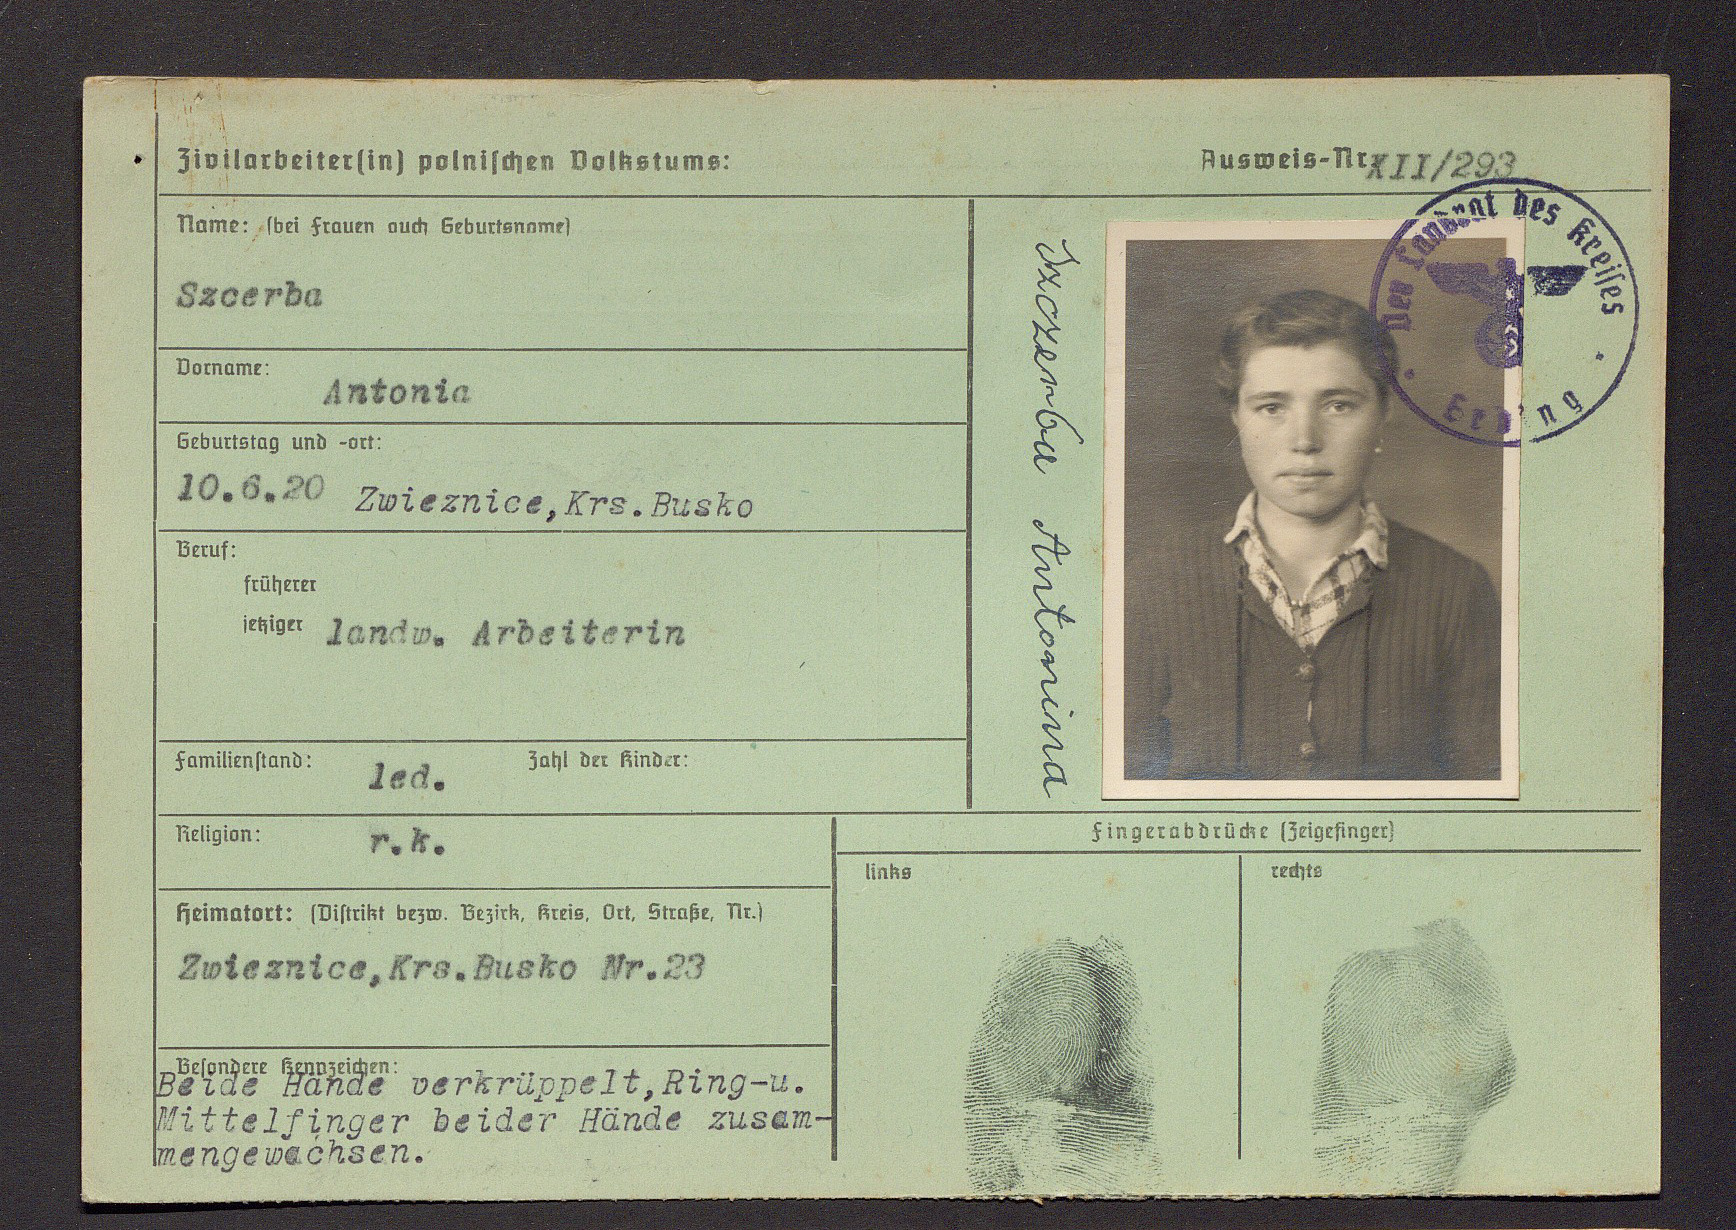 Zivilarbeiter(in) polnischen Volkstums:
Ausweis-Nr. XII/293
Name: (bei Frauen auch Geburtsname)
Szcerba
Vorname:
Antonia
Geburtstag und -ort:
10.6.20 Zwieznice,Krs.Busko
Beruf:
früherer
jetziger landw. Arbeiterin
Familienstand: led. Zahl der Kinder:
Szczerba Antonina
Der Landrat des Kreises
Erding
Religion: r.k.
Heimatort: (Distrikt bezw. Bezirk, Kreis, Ort, Straße, Nr.)
Zwieznice,Krs.Busko Nr.23
Besondere Kennzeichen:
Beide Hände verkrüppelt,Ring-u.
Mittelfinger beider Hände zusam-
mengewachsen.
Fingerabdrücke (Zeigefinger)
links
rechts